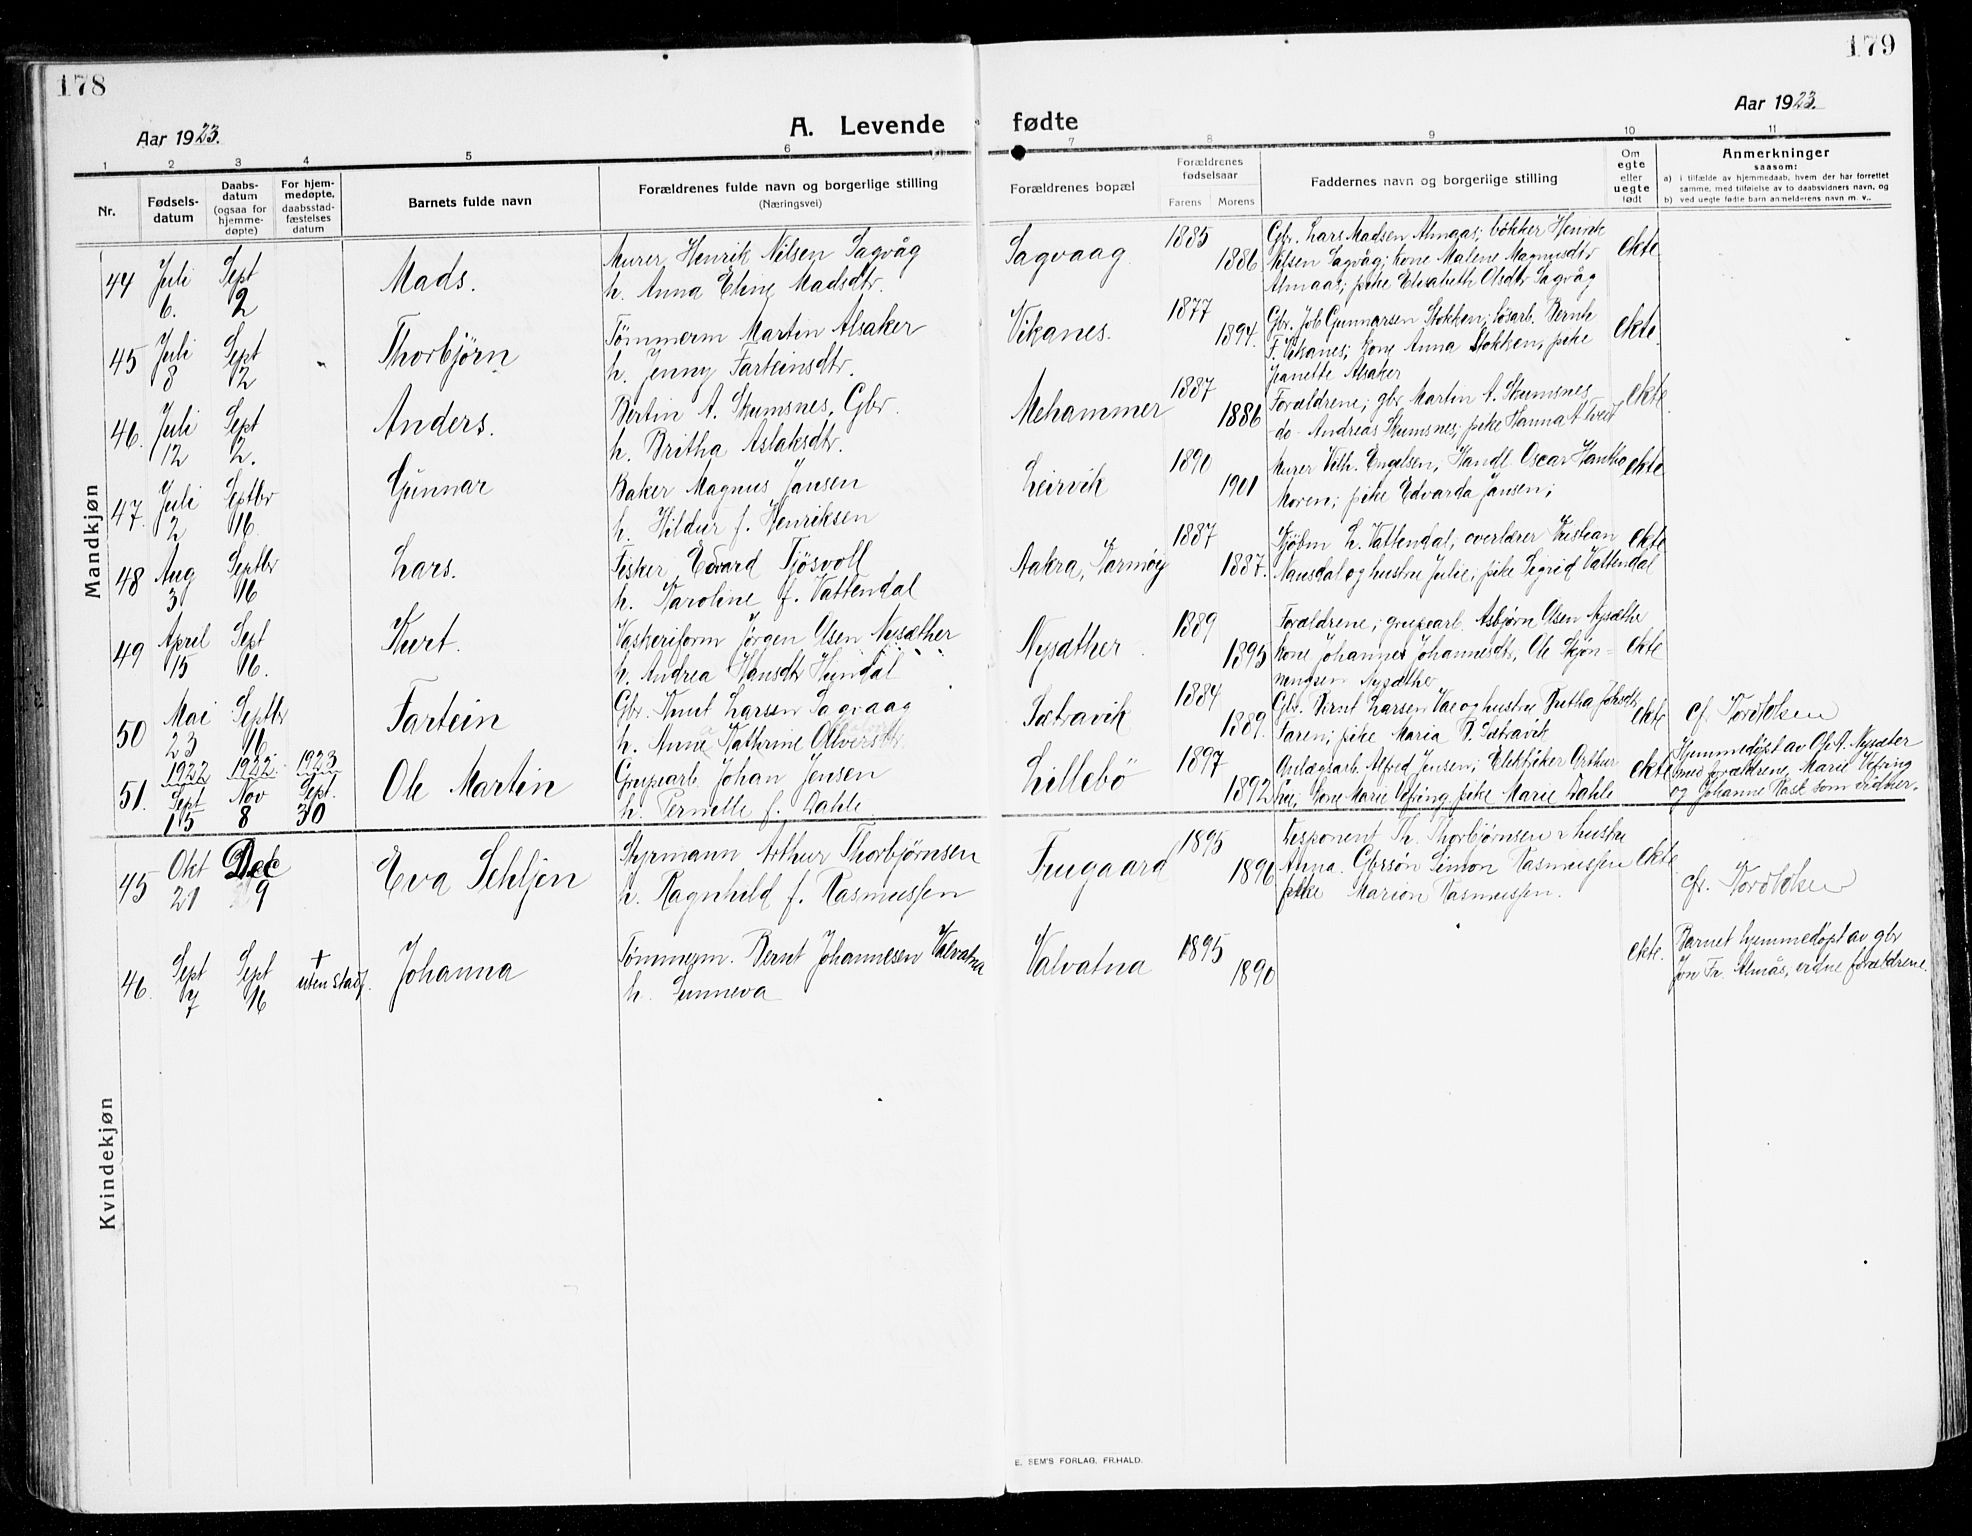 178
Aar 1923.
A. Levende
1 2 3 4 5 6
Nr.
Fødsels-
datum
Daabs-
datum
(ogsaa for
hjemme-
døpte)
For hjem-
medøpte,
daabsstad-
fæstelses
datum
Barnets fulde navn
Forældrenes fulde navn og borgerlige stilling
(Næringsvei)
Mandkjøn
44 Juli 6. Sept 2 Mads. Murer Henrik Nilsen Sagvåg
h. Anna Eline Madsdtr.
45 Juli 8 Sept 2 Thorbjörn Tömmerm Martin Alsaker
h. Jenny Farteinsdtr.
46. Juli 12 Sept 2. Anders. Bertin A. Skumsnes, Gbr.
h. Britha Aslaksdtr.
47. Juli 2 Septbr 16. Gunnar Baker Magnus Jansen
h. Hildur f. Henriksen
48 Aug 3 Septbr 16 Lars. Fisker Edvard Tjösvoll
h. Karoline f. Vattendal
49 April 15 Sept 16. Kurt. Vaskeriform Jörgen Olsen Nysæther
h. Andrea Hansdtr
50 Mai 23 Septbr 16 Fartein Gbr. Knut Larsen Sagvaag
h. Anne Kathrine
51. 1922 Sept 15 1922 Nov 8 1923 Sept. 30 Ole Martin Grupearb. Johan Jensen
h. Pernelle f. Dahle
Kvindekjøn
45 Okt 21 Dec 9 Eva Sehljen Styrmann Arthur Thorbjörnsen
h. Ragnhild f. Rasmussen
46. Sept 7 Sept 16 + uten stadf. Johanna Tömmerm. Bernt Johannesen Valvatna
h. Sunneva
179
Aar 1923.
fødte
7 8 9 10 11
Forældrenes bopæl
Forældrenes
fødselsaar
Farens Morens
Faddernes navn og borgerlige stilling
Om
egte
eller
uegte
født
Anmerkninger
saasom:
a) i tilfælde av hjemmedaab, hvem der har forrettet
samme, med tilføielse av to daabsvidners navn, og
b) ved uegte fødte barn anmelderens navn m. v..
Sagvaag. 1885 1886 Gbr. Lars Madsen Almaas; bökker Henrik
Nilsen Sagvåg; kone Malene Magnusdtr
Almaas; pike Elisabeth Olsdtr Sagvåg
ekte
Vikanes. 1877 1894. Gbr. Job Gunnarsen Stokken; lösarb. Bernt
F. Vikanes; kone Anna Stokken, pike
Jeanette Alsaker
ekte.
Mehammer 1887 1886 Forældrene; gbr Martin A. Skumsnes
do - Andreas Skumsnes; pike Hanna A Tveit
ekte.
Leirvik 1890 1901 Murer Vilh. Engelsen, Handl. Oscar
Moren; pike Edvarda Jansen;
ekte
Aakra, Karmöy 1887 1887. Kjöbm L. Vattendal, overlærer Kristian
Nansdal og hustru Julie; pike Sigrid Vattendal
ekte
Nysæther. 1889 1895 Forældrene; grupearb. Asbjörn Olsen Nysæther
kone Johanne Johannesdtr, Ole Skjön-
ningsen Nysæther
ekte
Sætravik 1884 1889. Gbr. Bernt Larsen og hustru Britha
pike Maria B. Sætravik
ekte
Lillebö 1897 1892 Anlægsarb. Alfred Jensen; Elektriker Arthur
kone Marie Vefring, pike Marie Dahle
ekte
Hjemmedöpt av Ole A. Nysæter
med forældrene, Marie Vefring
og Johanne Rask som vidner.
1895 1896 Disponent Th. Thorbjörnsen & hustru
Anna. Gbrsön Simon Rasmussen
pike Marion Rasmussen.
ekte.
Valvatna 1895 1890 ekte. Barnet hjemmedöpt av gbr
Jon Tr. Almås, vidne forældrene.
E. SEM'S FORLAG, FR.HALD.